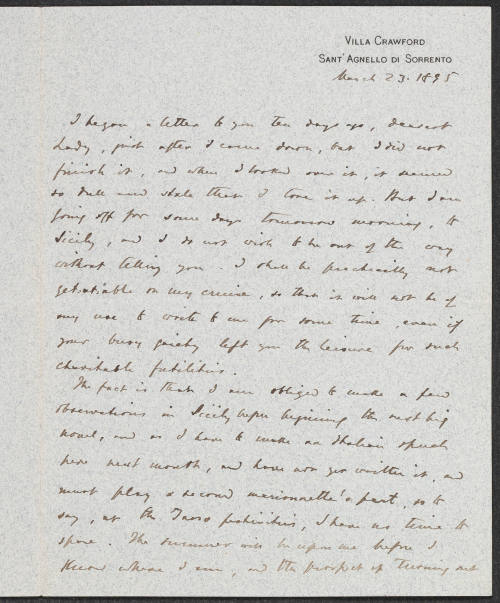 VILLA CRAWFORD
SANT' AGNELLO DI SORRENTO
March 23. 1895
I began a letter to you ten days ago, dearest
Lady, just after I came down, but I did not
finish it, and when I looked over it, it seemed
so dull and stale that I tore it up. But I am
going off for some days tomorrow morning, to
Sicily, and I do not wish to be out of the way
without telling you. I shall be practically not
getatiable on my cruise, so that it will not be of
any use to write to me for some time, even if
your busy gaiety left you the leisure for such
charitable futilities.
The fact is that I am obliged to make a few
observations in Sicily before beginning the next big
novel, and as I have to make an Italian speech
here next month, and have not yet written it, and
must play a second marionnette's part, so to
say, at the Tasso festivities, I have no time to
spare. The summer will be upon me before I
know where I am, and the prospect of turning out